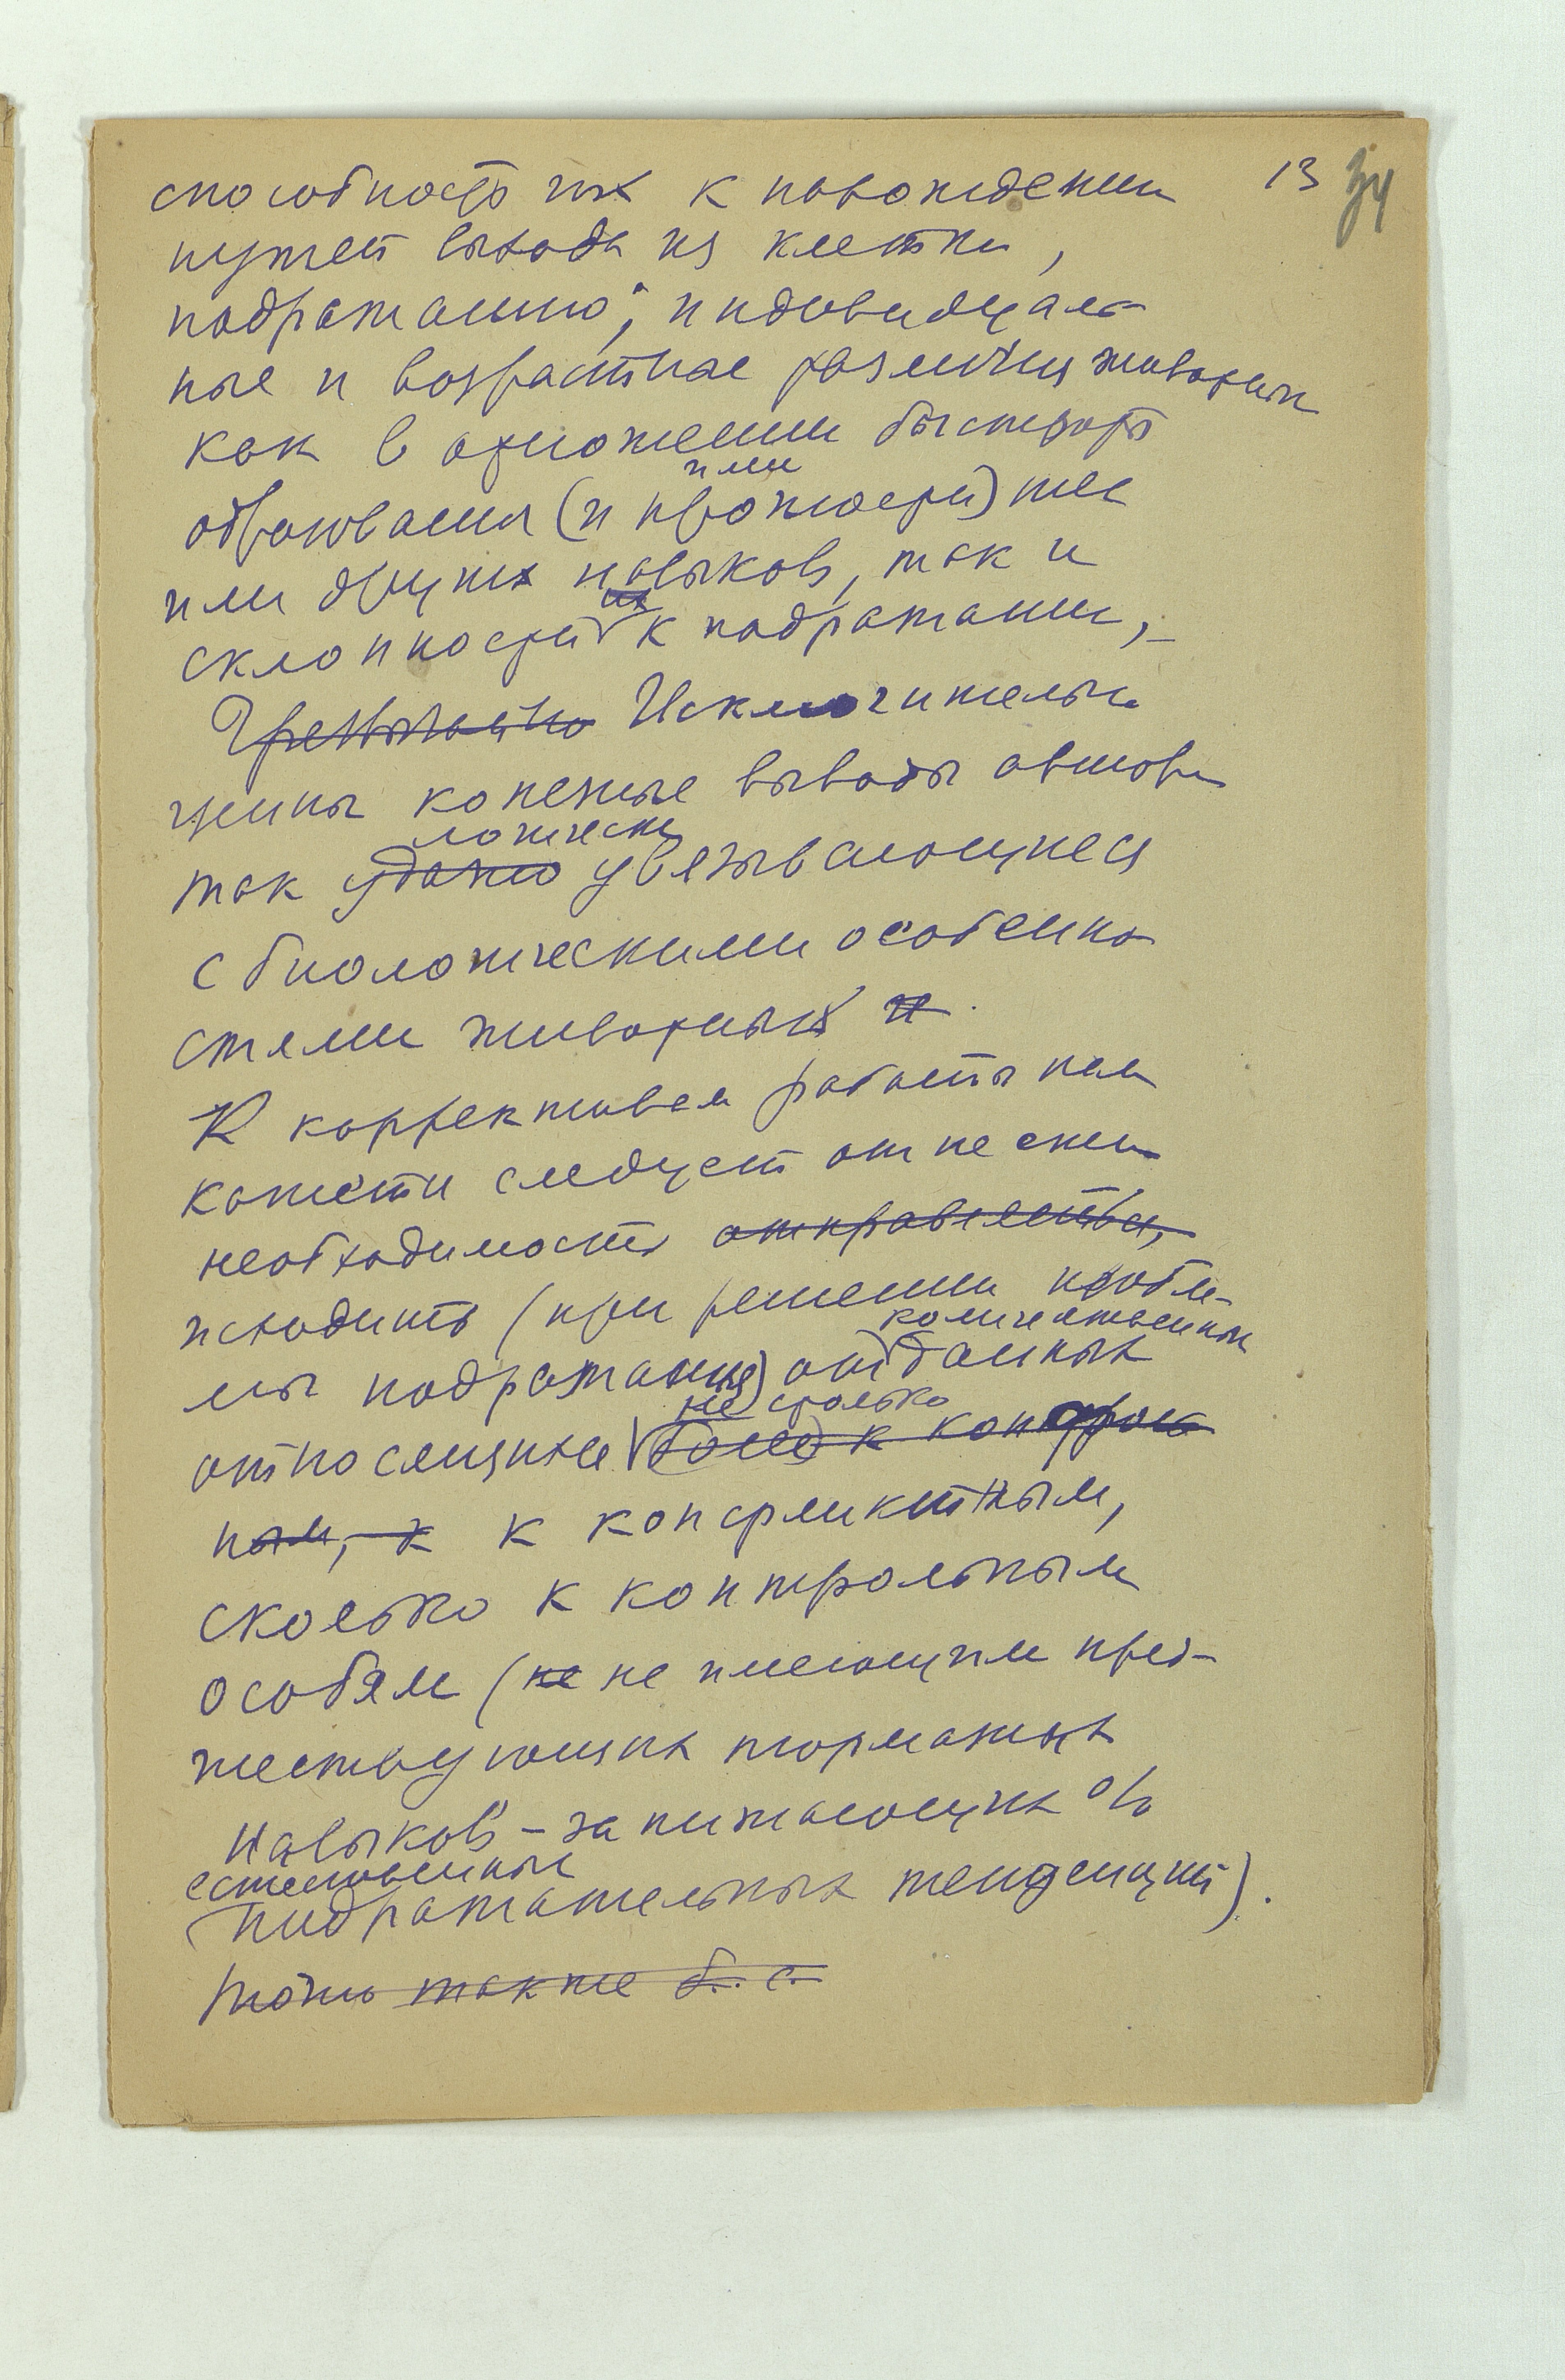 13 34
способность их к нахождению
путей выхода из клетки,
подражанию; индивидуаль-
ные и возрастные различия животных
как в отношении быстроты
образования (и прочности) тех
или
или других навыков, так и
склонности их к подражанию,–
Чрезвычайно Исключительно
ценны конечные выводы автора
так удачно логически увязывающиеся
с биологическими особенно
стями животных и.
К коррективам работы нам
кажется следует отнести
необходимость отправляться,
исходить (при решении пробле-
мы подражания) от количественных данных
относящихся более к контроль
не столько
ным, к к конфликтным,
сколько к контрольным
особям (не не имеющим пред-
шествующих тормозных
навыков – занижающих %
естественных
подражательных тенденций).
Точно также б. с.